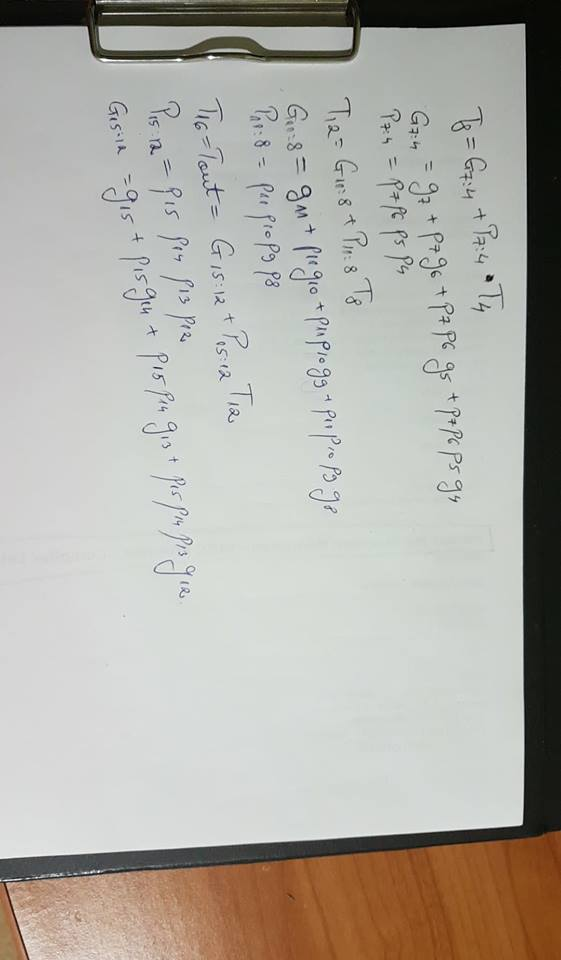 T8 = G7:4 + P7:4 • T4
G7:4 = g7 + p7g6 + p7p6 g5 + p7p6 p5g4
P7:4 = p7p6 p5 p4
T12 = G11:8 + P11:8 T8
G11:8 = g11 + p11g10 + p11p10g9 + p11p10 p9 g8
P11:8 = p11 p10p9 p8
T16 = Tout = G15:12 + P15:12 T12
P15:12 = p15 p14 p13 p12
G15:12 = g15 + p15g14 + p15 p14 g13 + p15 p14 p13 g12.